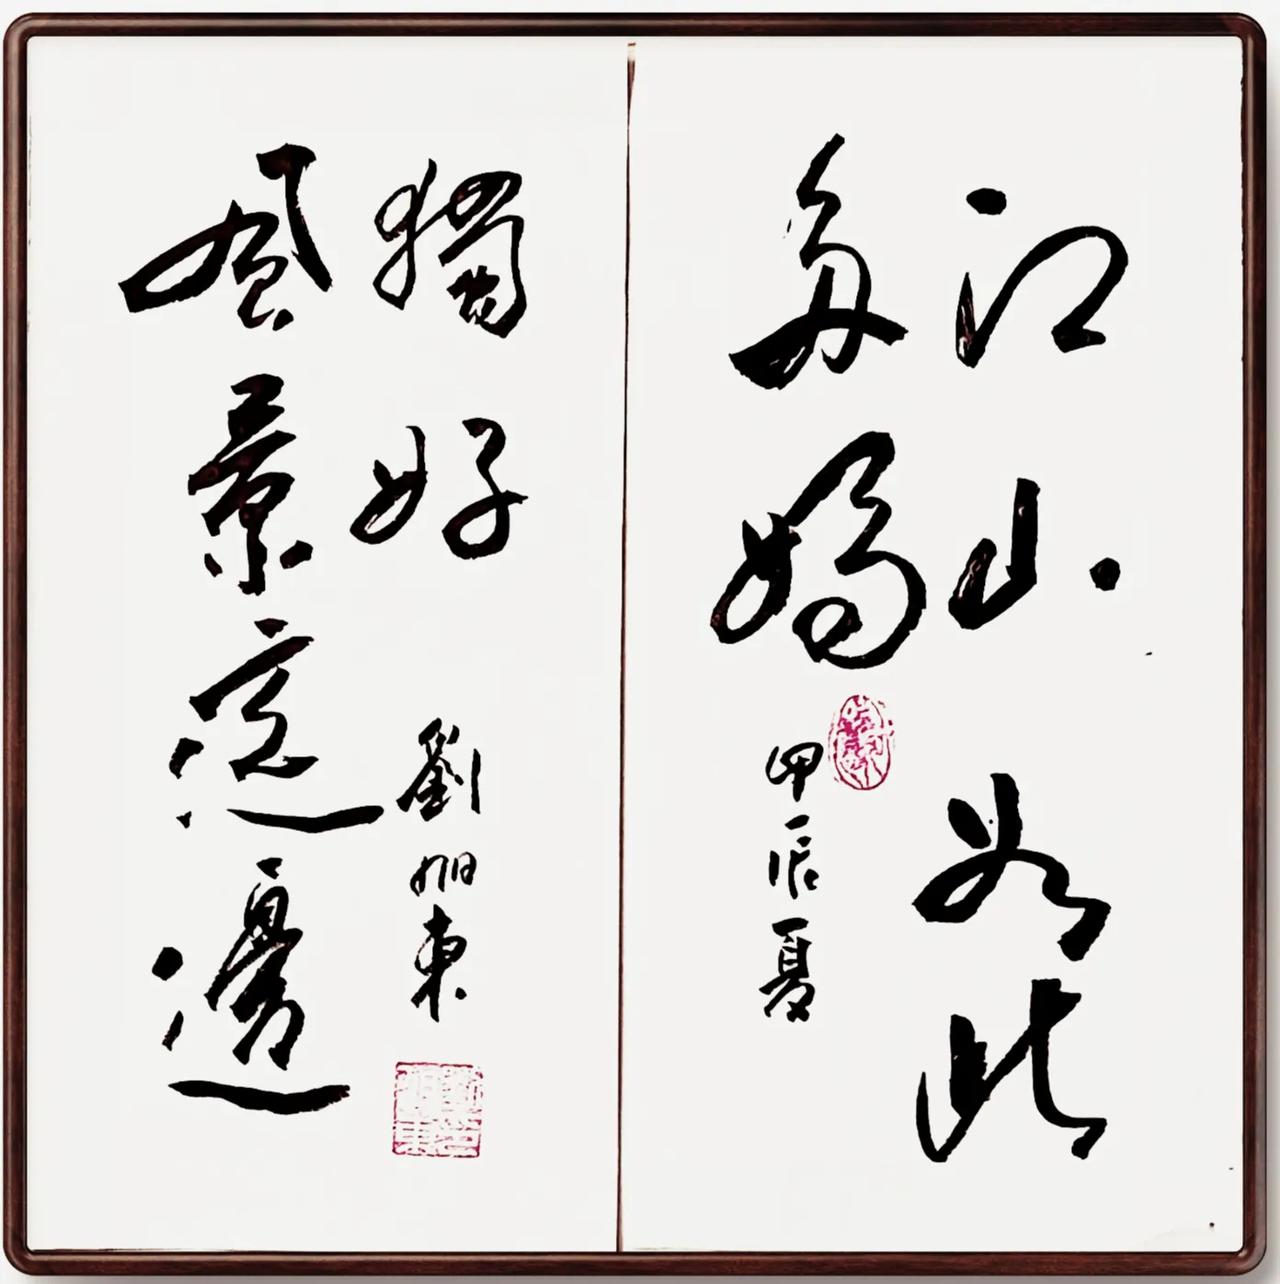 江山如此
多嬌
甲辰夏
風景這邊
獨好
劉旭東